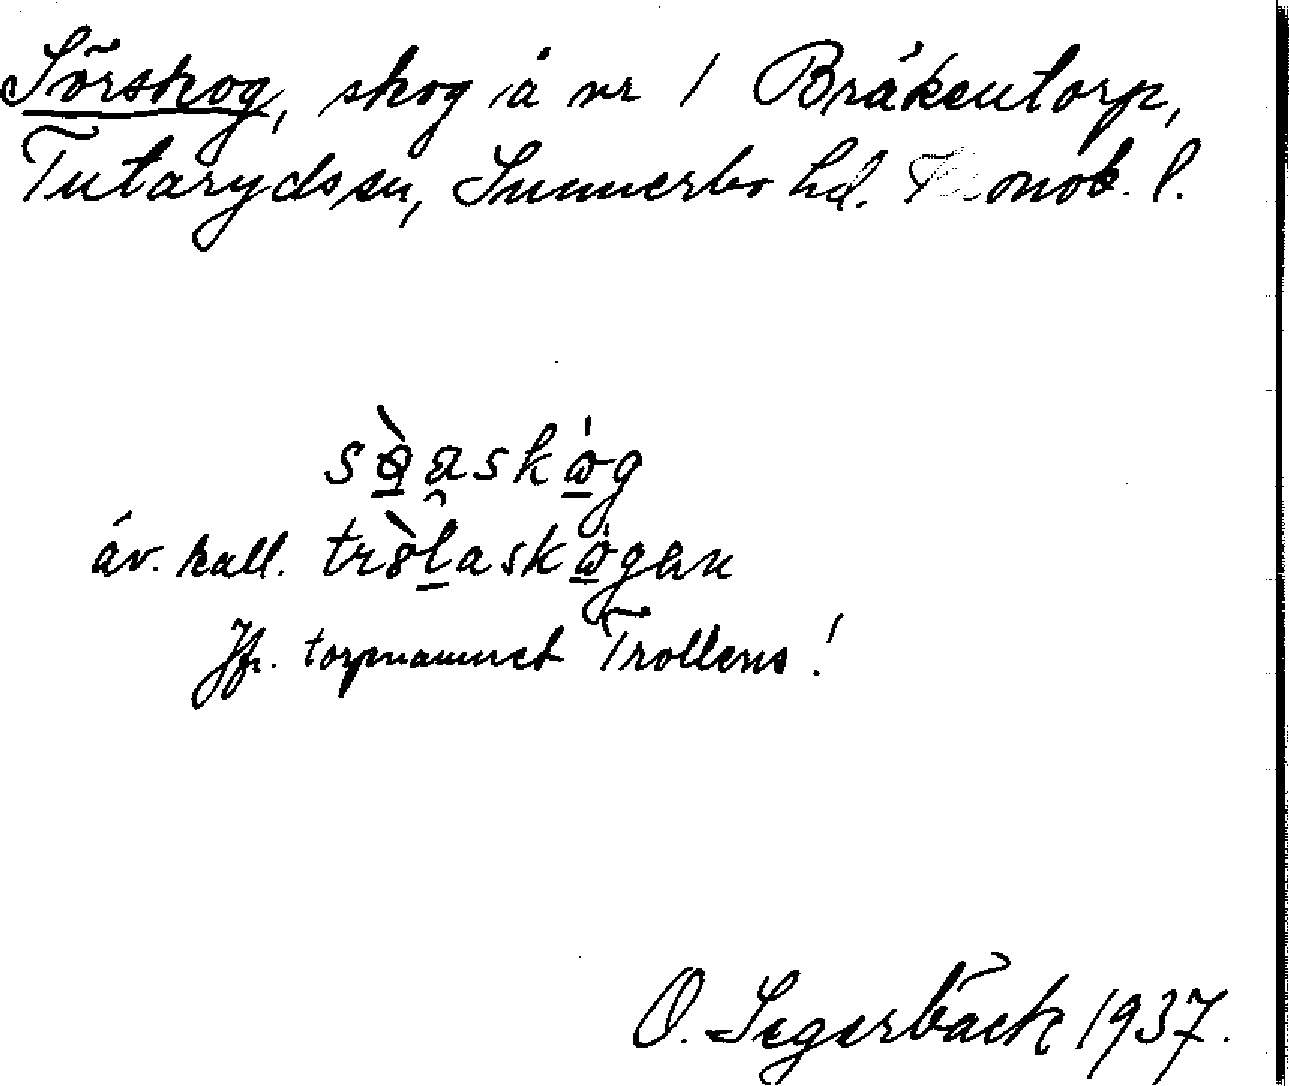 Sörskog, skog å nr 1 Bråkentorp,
Tutaryds sn, Sunnerbo hd. Kronob. l.
sө̀a̯skὼg
äv. kall. trol̲askὼgen
Jfr. torpnamnet Trollens!
O. Segerbäck 1937.